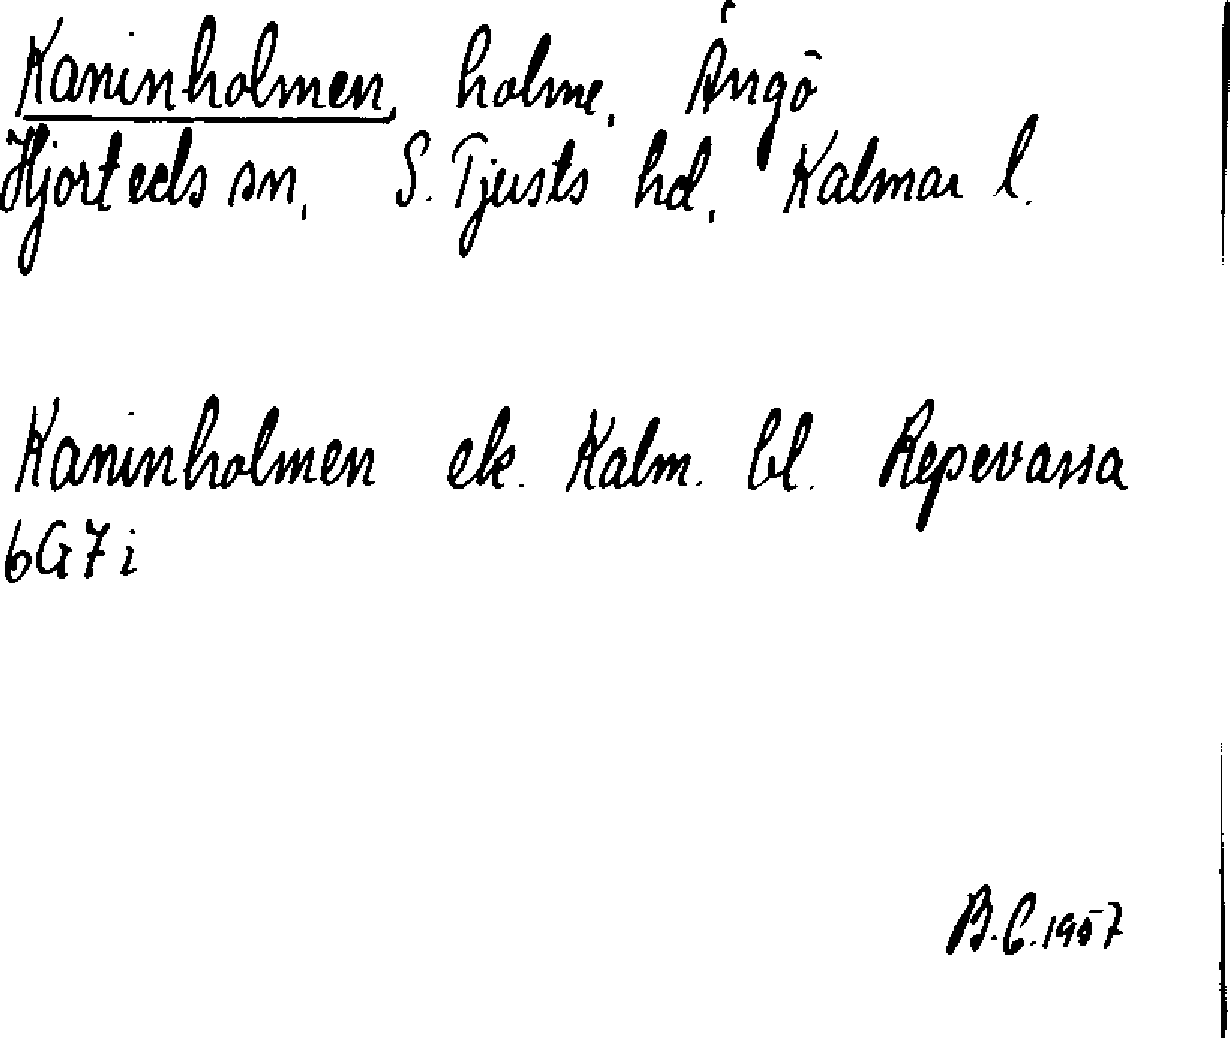 Kaninholmen, holme, Ängö
Hjorteds sn, S. Tjusts hd, Kalmar l.
Kaninholmen ek. Kalm. bl. Repevassa
6G7i
B.C. 1957